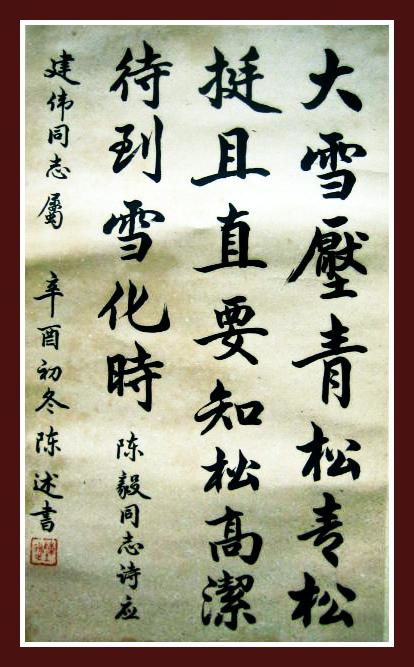 大雪壓青松青松
挺且直要知松高潔
待到雪化時 陈毅同志诗应
建伟同志屬 辛酉初冬陈述書